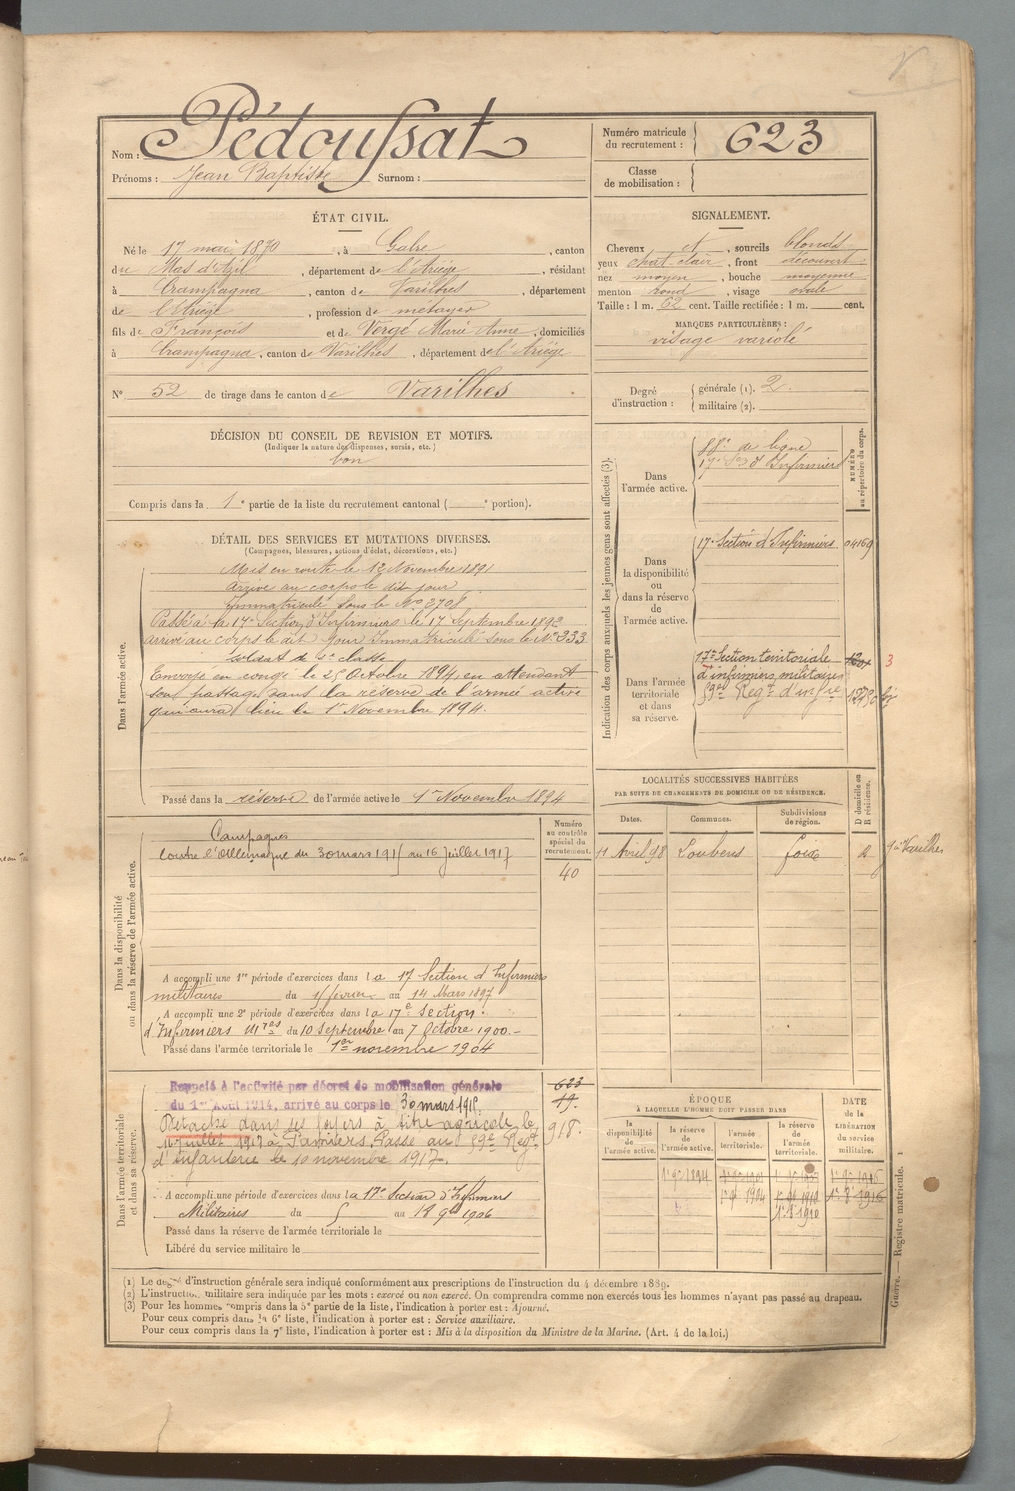 Nom : Pédoussat
Prénoms : Jean Baptiste Surnom :
Numéro matricule du recrutement : 623
Classe de mobilisation :
ÉTAT CIVIL.
Né le 17 mai 1870, à Gabre, canton
du Mas d'Azil, département de l'Ariège, résidant
à Crampagna, canton de Varilhes, département
de l'Ariège, profession de métayer
fils de François et de Vergé Marie Anne, domiciliés
à Crampagna, canton de Varilhes, département de l'Ariège
N° 52 de tirage dans le canton de Varilhes
SIGNALEMENT.
Cheveux et, sourcils blonds
yeux chat clair, front découvert
nez moyen, bouche moyenne
menton rond, visage ovale
Taille : 1 m. 62 cent. Taille rectifiée : 1 m. cent.
MARQUES PARTICULIÈRES :
visage variolé
Degré d'instruction : générale (1). 2.
militaire (2).
DÉCISION DU CONSEIL DE REVISION ET MOTIFS.
(Indiquer la nature des dispenses, sursis, etc.)
bon
Compris dans la 1e partie de la liste du recrutement cantonal ( e portion).
DÉTAIL DES SERVICES ET MUTATIONS DIVERSES.
(Campagnes, blessures, actions d'éclat, décorations, etc.)
Dans l'armée active.
Mis en route le 12 Novembre 1891
arrivé au corps le dit jour
Immatriculé sous le No 3708
Passé à la 17e Section d'Infirmiers le 17 Septembre 1892
arrivé au corps le dit jour Immatriculé sous le No 333
soldat de 2e classe
Envoyé en congé le 25 Octobre 1894, en attendant
son passage dans la réserve de l'armée active
qui aura lieu le 1er Novembre 1894.
Passé dans la réserve de l'armée active le 1er Novembre 1894
Indication des corps auxquels les jeunes gens sont affectés (3).
NUMÉRO au répertoire du corps.
Dans l'armée active.
88e de ligne
17e Son d'Infirmiers
Dans la disponibilité ou dans la réserve de l'armée active.
17e Section d'Infirmiers 04160
Dans l'armée territoriale et dans sa réserve.
17e Section territoriale 3
d'infirmiers militaires
59e Regt d'infie
LOCALITÉS SUCCESSIVES HABITÉES
PAR SUITE DE CHANGEMENTS DE DOMICILE OU DE RÉSIDENCE.
D domicile ou R résidence.
Dates. Communes. Subdivisions de région.
11 Avril 98 Loubens Foix
Varilhes
Dans la disponibilité ou dans la réserve de l'armée active.
Numéro au contrôle spécial du recrutement.
40
Campagnes
contre l'Allemagne du 30 mars 1915 au 16 juillet 1917
A accompli une 1re période d'exercices dans la 17 Section d'Infirmiers
militaires du 15 février au 14 Mars 1897
A accompli une 2e période d'exercices dans la 17e Section
d'Infirmiers Mres du 10 Septembre au 7 Octobre 1900.-
Passé dans l'armée territoriale le 1er novembre 1904
Dans l'armée territoriale et dans sa réserve.
623
19.
918.
Rappelé à l'activité par décret de mobilisation générale
du 1er Août 1914, arrivé au corps le 30 mars 1915.
Détaché dans ses foyers à titre agricole le
16 juillet 1917 à Pamiers. Passé au 59e Regt
d'Infanterie le 10 novembre 1917.
A accompli une période d'exercices dans la 17e Section d'Infirmiers
Militaires du au 18 9bre 1906
Passé dans la réserve de l'armée territoriale le
Libéré du service militaire le
ÉPOQUE
À LAQUELLE L'HOMME DOIT PASSER DANS
la disponibilité de l'armée active.
la réserve de l'armée active.
l'armée territoriale.
la réserve de l'armée territoriale.
DATE de la LIBÉRATION du service militaire.
1er 9bre 1894
1er 9bre 1904
(1) Le degré d'instruction générale sera indiqué conformément aux prescriptions de l'instruction du 4 décembre 1889.
(2) L'instruction militaire sera indiquée par les mots : exercé ou non exercé. On comprendra comme non exercés tous les hommes n'ayant pas passé au drapeau.
(3) Pour les hommes compris dans la 5e partie de la liste, l'indication à porter est : Ajourné.
Pour ceux compris dans la 6e liste, l'indication à porter est : Service auxiliaire.
Pour ceux compris dans la 7e liste, l'indication à porter est : Mis à la disposition du Ministre de la Marine. (Art. 4 de la loi.)
Guerre. — Registre matricule. 1